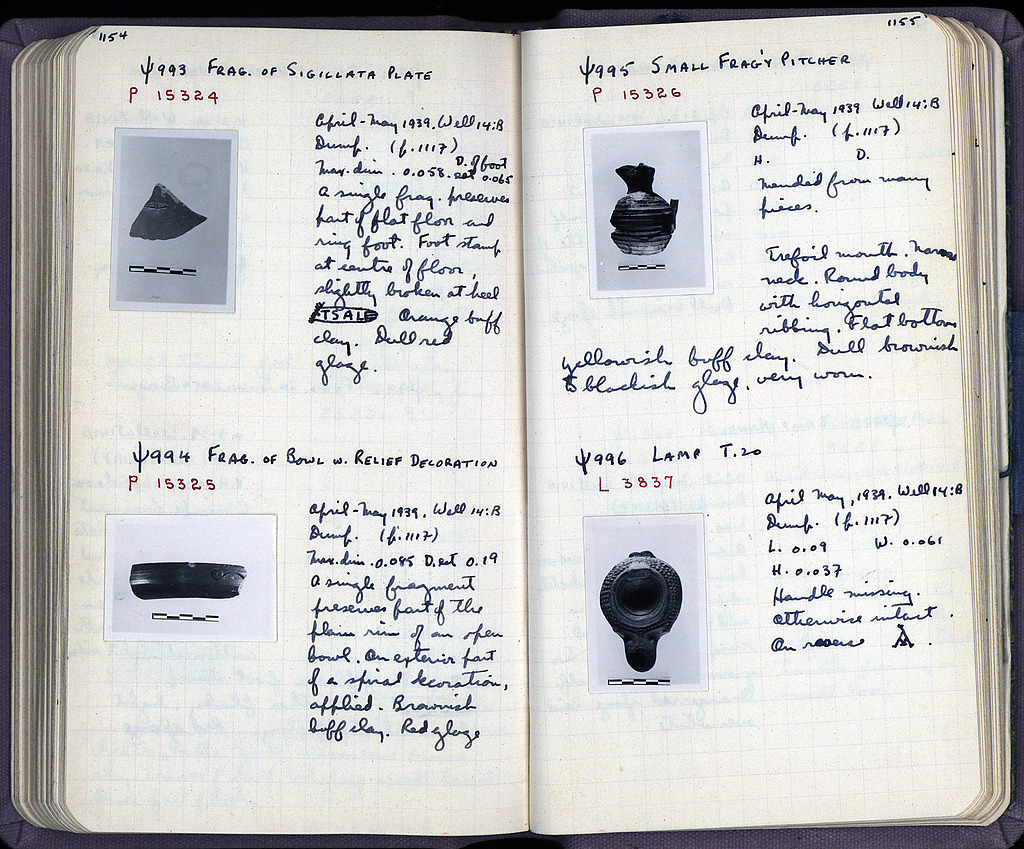 1154
Ψ993 FRAG. OF SIGILLATA PLATE
P 15324
April-May 1939. Well 14:B
Dump. (p.1117)
D. of foot
Max. dim. 0.058. est 0.065
A single frag. preserves
part of flat floor and
ring foot. Foot stamp
at centre of floor,
slightly broken at heel
TSALE Orange buff
clay. Dull red
glaze.
Ψ994 FRAG. OF BOWL W. RELIEF DECORATION
P 15325
April-May 1939. Well 14:B
Dump. (p.1117)
Max. dim. 0.085 D. est 0.19
A single fragment
preserves part of the
plain rim of an open
bowl. On exterior part
of a spiral decoration,
applied. Brownish
buff clay. Red glaze
1155
Ψ995 SMALL FRAG'Y PITCHER
P 15326
April-May 1939 Well 14:B
Dump. (p.1117)
H. D.
Mended from many
pieces.
Trefoil mouth. Narrow
neck. Round body
with horizontal
ribbing. Flat bottom
Yellowish buff clay. Dull brownish
to blackish glaze, very worn.
Ψ996 LAMP T.20
L 3837
April May, 1939. Well 14:B
Dump. (p.1117)
L. 0.09 W. 0.061
H. 0.037
Handle missing.
Otherwise intact.
On reverse A.